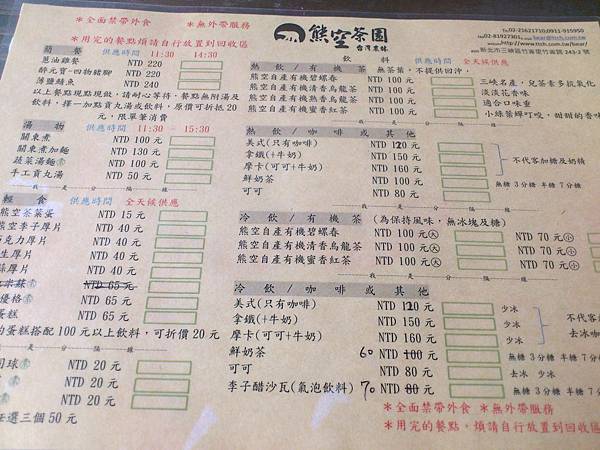 ＊全面禁帶外食 ＊無外帶服務
＊用完的餐點煩請自行放置到回收區
熊空茶園
台灣農林
02-21621710/0911-915950
02-81927301
http://www.ttch.com.tw/bear/
新北市三峽區竹崙里竹崙路 243-2 號
簡餐 供應時間 11:30 - 14:30
蔥油雞餐 NTD 220
醉元寶-四物豬腳 NTD 220
NTD 240
以上餐點現點現做，請耐心等待，餐點無附湯及
飲料，擇一加點貢丸湯或飲料，原價可折抵20
元，限單筆消費
湯物 供應時間 11:30 - 15:30
關東煮 NTD 100 元
關東煮加麵 NTD 130 元
蔬菜湯麵 NTD 100 元
手工貢丸湯 NTD 50 元
我 是 分 隔 線
輕食 供應時間 全天候供應
熊空茶葉蛋 NTD 15 元
熊空李子厚片 NTD 40 元
巧克力厚片 NTD 40 元
生厚片 NTD 40 元
厚片 NTD 40 元
NTD 65 元
優格 NTD 65 元
蛋糕 NTD 65 元
的蛋糕搭配100元以上飲料，可折價20元
是 分 隔 線
球 NTD 20 元
NTD 20 元
NTD 20 元
任選三個 50 元
飲料 全天候供應
熱飲/有機茶 無茶葉，不提供回沖，
熊空自產有機碧螺春 NTD 100 元 三峽名產，兒茶素多抗氧化
熊空自產有機清香烏龍茶 NTD 100 元 淡淡花香味
熊空自產有機熟香烏龍茶 NTD 100 元 適合口味重
熊空自產有機蜜香紅茶 NTD 100 元 小綠葉蟬叮咬，甜甜的香味
我 是 分 隔 線
熱飲/咖啡或其他
美式(只有咖啡) NTD 120 元
拿鐵(+牛奶) NTD 150 元
摩卡(可可+牛奶) NTD 160 元 不代客加糖及奶精
鮮奶茶 NTD 100 元 無糖 3分糖 半糖 7分糖
可可 NTD 80 元
我 是 分 隔 線
冷飲/有機茶 (為保持風味，無冰塊及糖)
熊空自產有機碧螺春 NTD 100 元 大 NTD 70 元 小
熊空自產有機清香烏龍茶 NTD 100 元 大 NTD 70 元 小
熊空自產有機蜜香紅茶 NTD 100 元 大 NTD 70 元 小
我 是 分 隔 線
冷飲/咖啡或其他
美式(只有咖啡) NTD 120 元 少冰
拿鐵(+牛奶) NTD 150 元 少冰 不代客
摩卡(可可+牛奶) NTD 160 元 少冰 去冰咖
鮮奶茶 60 NTD 100 元 無糖 3分糖 半糖 7分
可可 NTD 80 元 去冰 少冰
李子醋沙瓦(氣泡飲料) 70 NTD 80 元 無糖 3分糖 半糖 7分
＊全面禁帶外食 ＊無外帶服務
＊用完的餐點，煩請自行放置到回收區